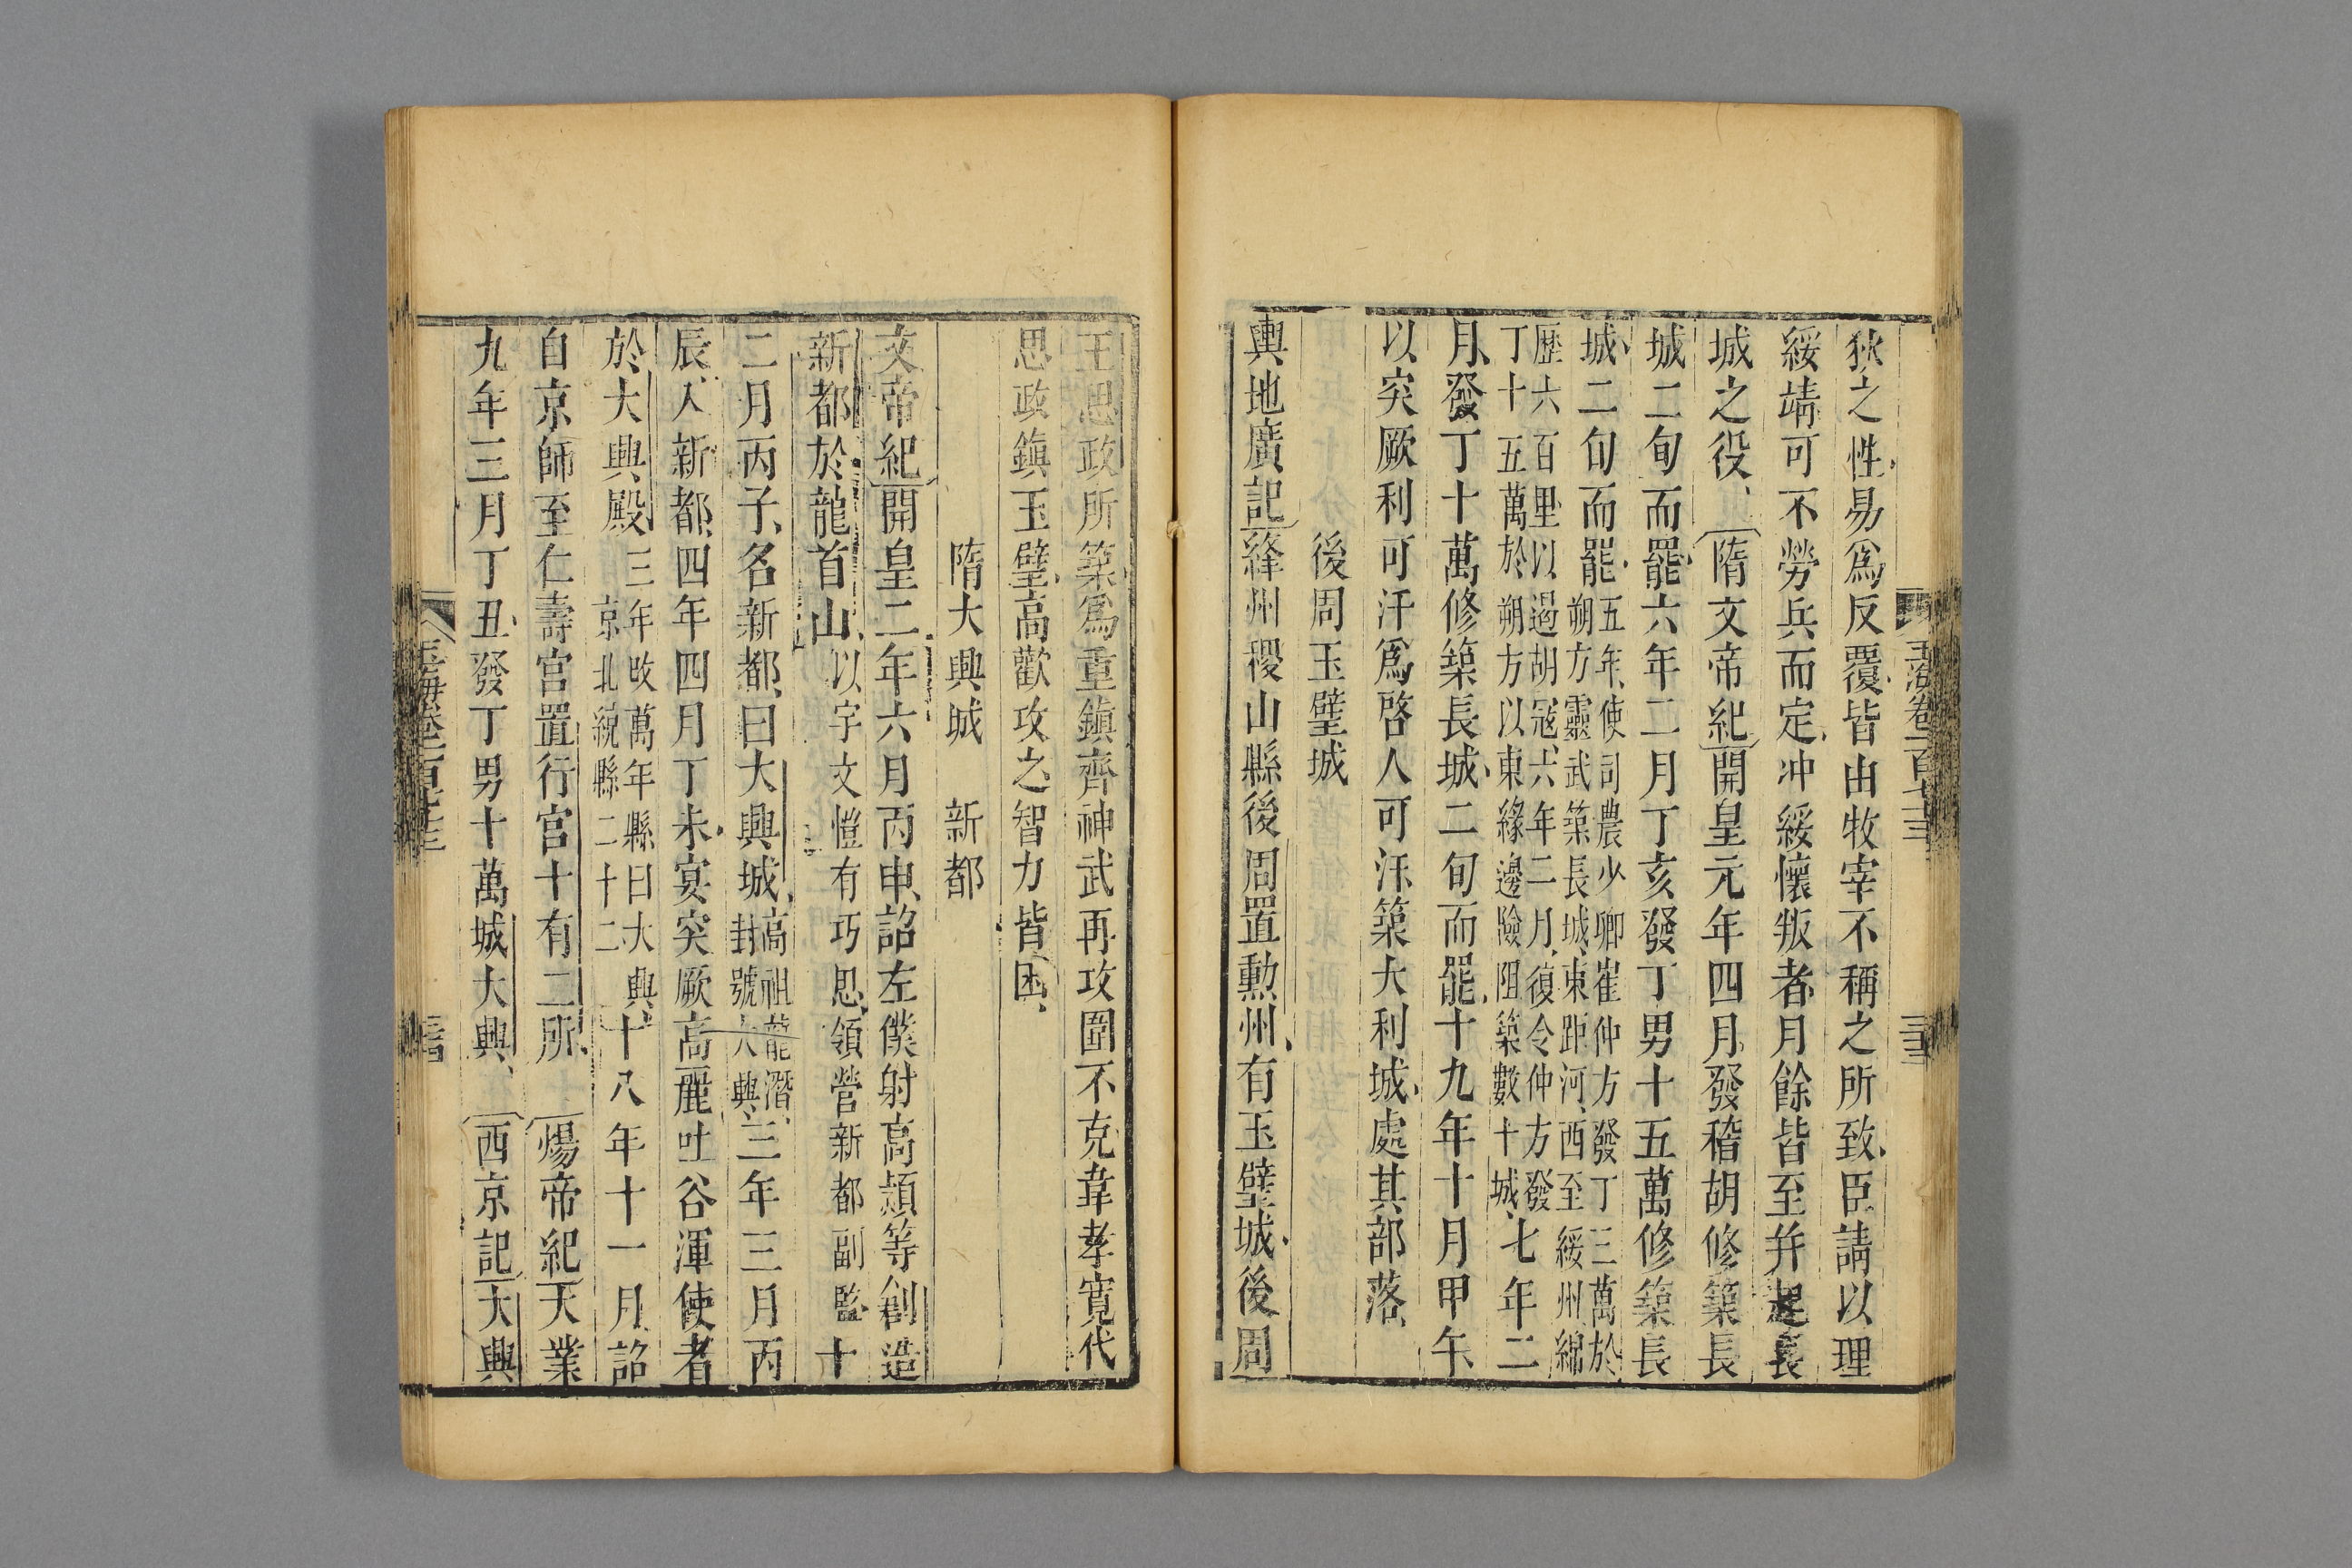 狄之性易爲反覆皆由牧宰不稱之所致臣請以理
綏靖可不勞兵而定冲綏懷叛者月餘皆至并起長
城之役隋文帝紀開皇元年四月發稽胡修築長
城二旬而罷六年二月丁亥發丁男十五萬修築長
城二旬而罷五年使司農少卿崔仲方發丁三萬於
朔方靈武築長城東距河西至綏州綿
歷六百里以遏胡寇六年二月復令仲方發
丁十五萬於朔方以東緣邊險阻築數十城七年二
月發丁十萬修築長城二旬而罷十九年十月甲午
以突厥利可汗爲啓人可汗築大利城處其部落
後周玉璧城
輿地廣記絳州稷山縣後周置勳州有玉壁城後周
王思政所築爲重鎮齊神武再攻圍不克韋孝寬代
思政鎮玉壁高歡攻之智力皆困
隋大興城 新都
文帝紀開皇二年六月丙申詔左僕射高熲等創造
新都於龍首山以宇文愷有巧思領營新都副監十
二月丙子名新都曰大興城高祖龍潛
封號大興三年三月丙
辰入新都四年四月丁未宴突厥高麗吐谷渾使者
於大興殿三年改萬年縣曰大興
京北統縣二十二十八年十一月詔
自京師至仁壽宮置行宮十有二所煬帝紀大業
九年三月丁丑發丁男十萬城大興西京記大興
玉海卷一百七十三
三十三